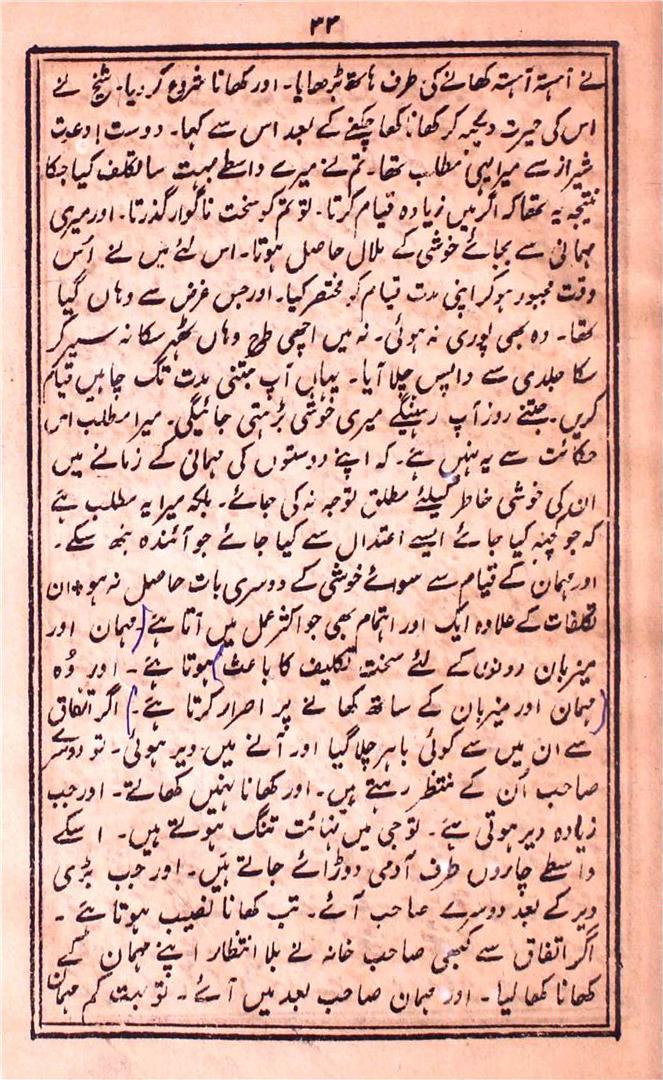 ۳۳
نے آہستہ آہستہ کھانے کی طرف ہاتھ بڑھایا۔ اور کھانا شروع کر دیا۔ شیخ نے
اس کی حیرت دیکھ کر کھانا کھا چکنے کے بعد اس سے کہا۔ دوست! دعوت
شیراز سے میرا یہی مطلب تھا۔ تم نے میرے واسطے بہت سا تکلف کیا جسکا
نتیجہ یہ تھا کہ اگر میں زیادہ قیام کرتا۔ تو تم کو سخت ناگوار گذرتا۔ اور میری
مہمانی سے بجائے خوشی کے ملال حاصل ہوتا۔ اس لئے میں نے اُس
وقت مجبور ہو کر اپنی مدت قیام کو مختصر کیا۔ اور جس غرض سے وہاں گیا
تھا۔ وہ بھی پوری نہ ہوئی۔ نہ میں اچھی طرح وہاں ٹھہر سکا نہ سیر کر
سکا جلدی سے واپس چلا آیا۔ یہاں آپ جتنی مدت تک چاہیں قیام
کریں۔ جتنے روز آپ رہینگے میری خوشی بڑھتی جائیگی۔ میرا مطلب اس
حکائت سے یہ نہیں ہے۔ کہ اپنے دوستوں کی مہمانی کے زمانے میں
انکی خوشی خاطر کیلئے مطلق توجہ نہ کی جائے۔ بلکہ میرا یہ مطلب ہے
کہ جو کچھ کیا جائے ایسے اعتدال سے کیا جائے جو آئندہ نبھ سکے۔
اور مہمان کے قیام سے سوائے خوشی کے دوسری بات حاصل نہ ہو + ان
تکلفات کے علاوہ ایک اور اہتمام بھی جو اکثر عمل میں آتا ہے (مہمان اور
میزبان دونوں کے لئے سخت تکلیف کا باعث) ہوتا ہے۔ اور وُہ
(مہمان اور میزبان کے ساتھ کھانے پر اصرار کرتا ہے۔) اگر اتفاق
سے ان میں سے کوئی باہر چلا گیا اور آنے میں دیر ہوئی۔ تو دوسرے
صاحب اُن کے منتظر رہتے ہیں۔ اور کھانا نہیں کھاتے۔ اور جب
زیادہ دیر ہوتی ہے۔ تو جی میں نہائت تنگ ہوتے ہیں۔ اسکے
واسطے چاروں طرف آدمی دوڑائے جاتے ہیں۔ اور جب بڑی
دیر کے بعد دوسرے صاحب آئے۔ تب کھانا نصیب ہوتا ہے۔
اگر اتفاق سے کبھی صاحب خانہ نے بلا انتظار اپنے مہمان کے
کھانا کھا لیا۔ اور مہمان صاحب بعد میں آئے۔ تو بہت کم مہمان